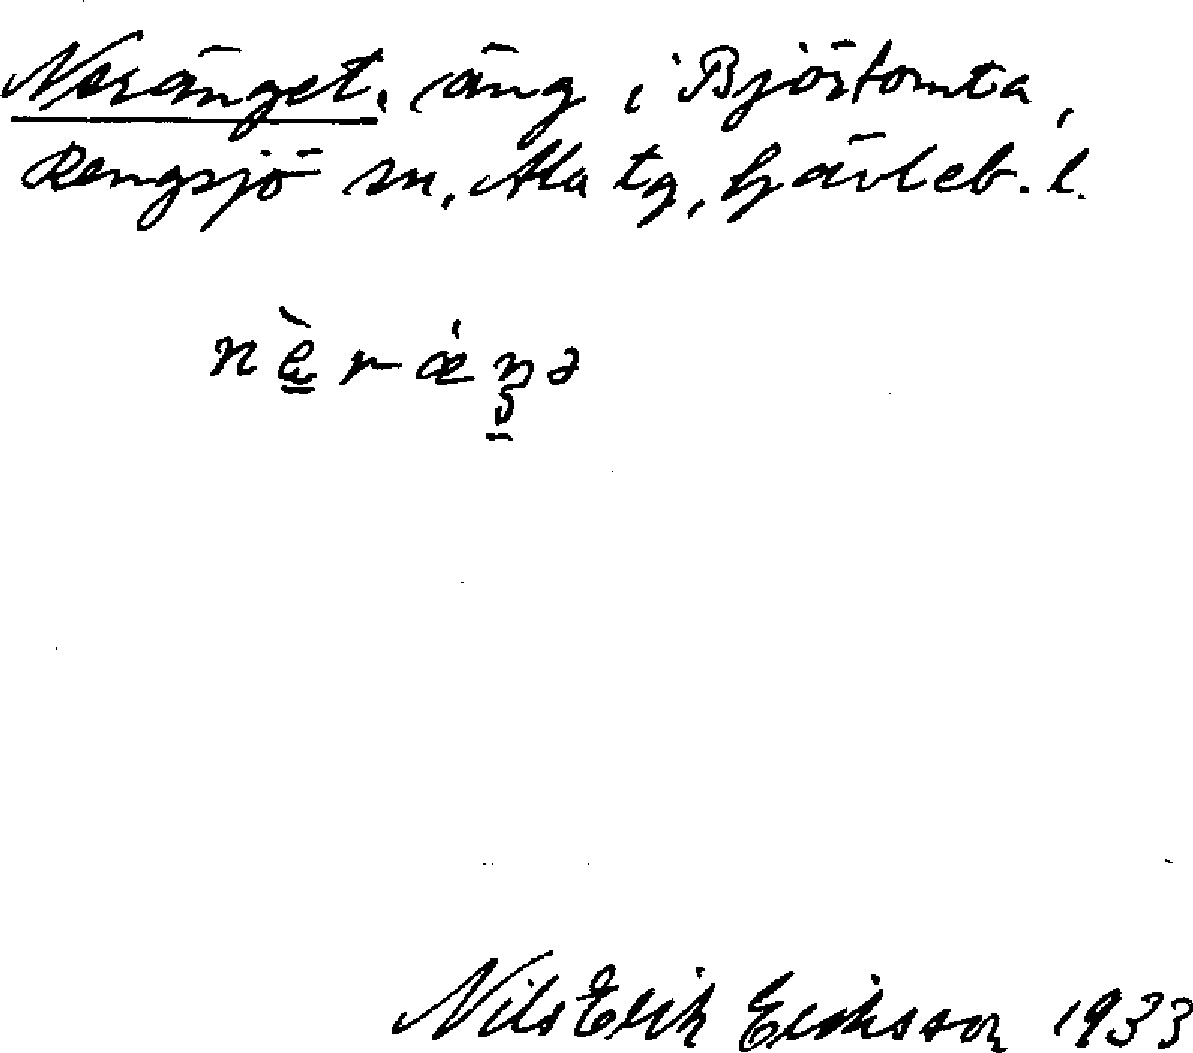 Neränget, äng i Björtomta,
Rengsjö sn, Ala tg, Gävleb. l.
nèränə
Nils Erik Eriksson 1933